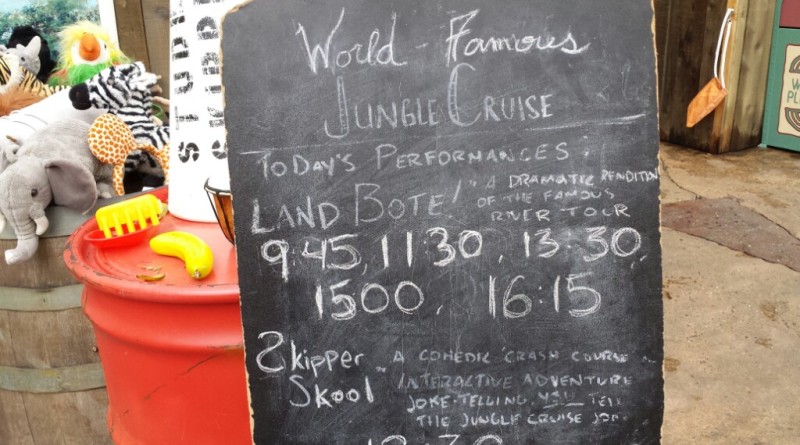 World-Famous
JUNGLE CRUISE
TODAY'S PERFORMANCES:
LAND BOTE! "A DRAMATIC RENDITION
OF THE FAMOUS
RIVER TOUR
9:45, 1130, 13:30,
1500, 16:15
Skipper "A COMEDIC CRASH COURSE
Skool INTERACTIVE ADVENTURE
JOKE-TELLING. YOU TELL
THE JUNGLE CRUISE